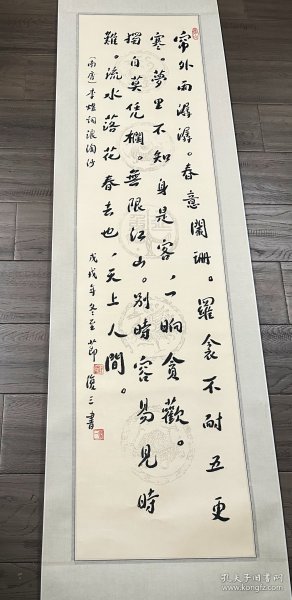 帘外雨潺潺。春意阑珊。羅衾不耐五更
寒。夢里不知身是客，一晌貪歡。
獨自莫凭欄。無限江山。别時容易見時
難。流水落花春去也，天上人間。
（南唐）李煜詞浪淘沙
戊戌年冬至節 俊三書
孔夫子旧书网